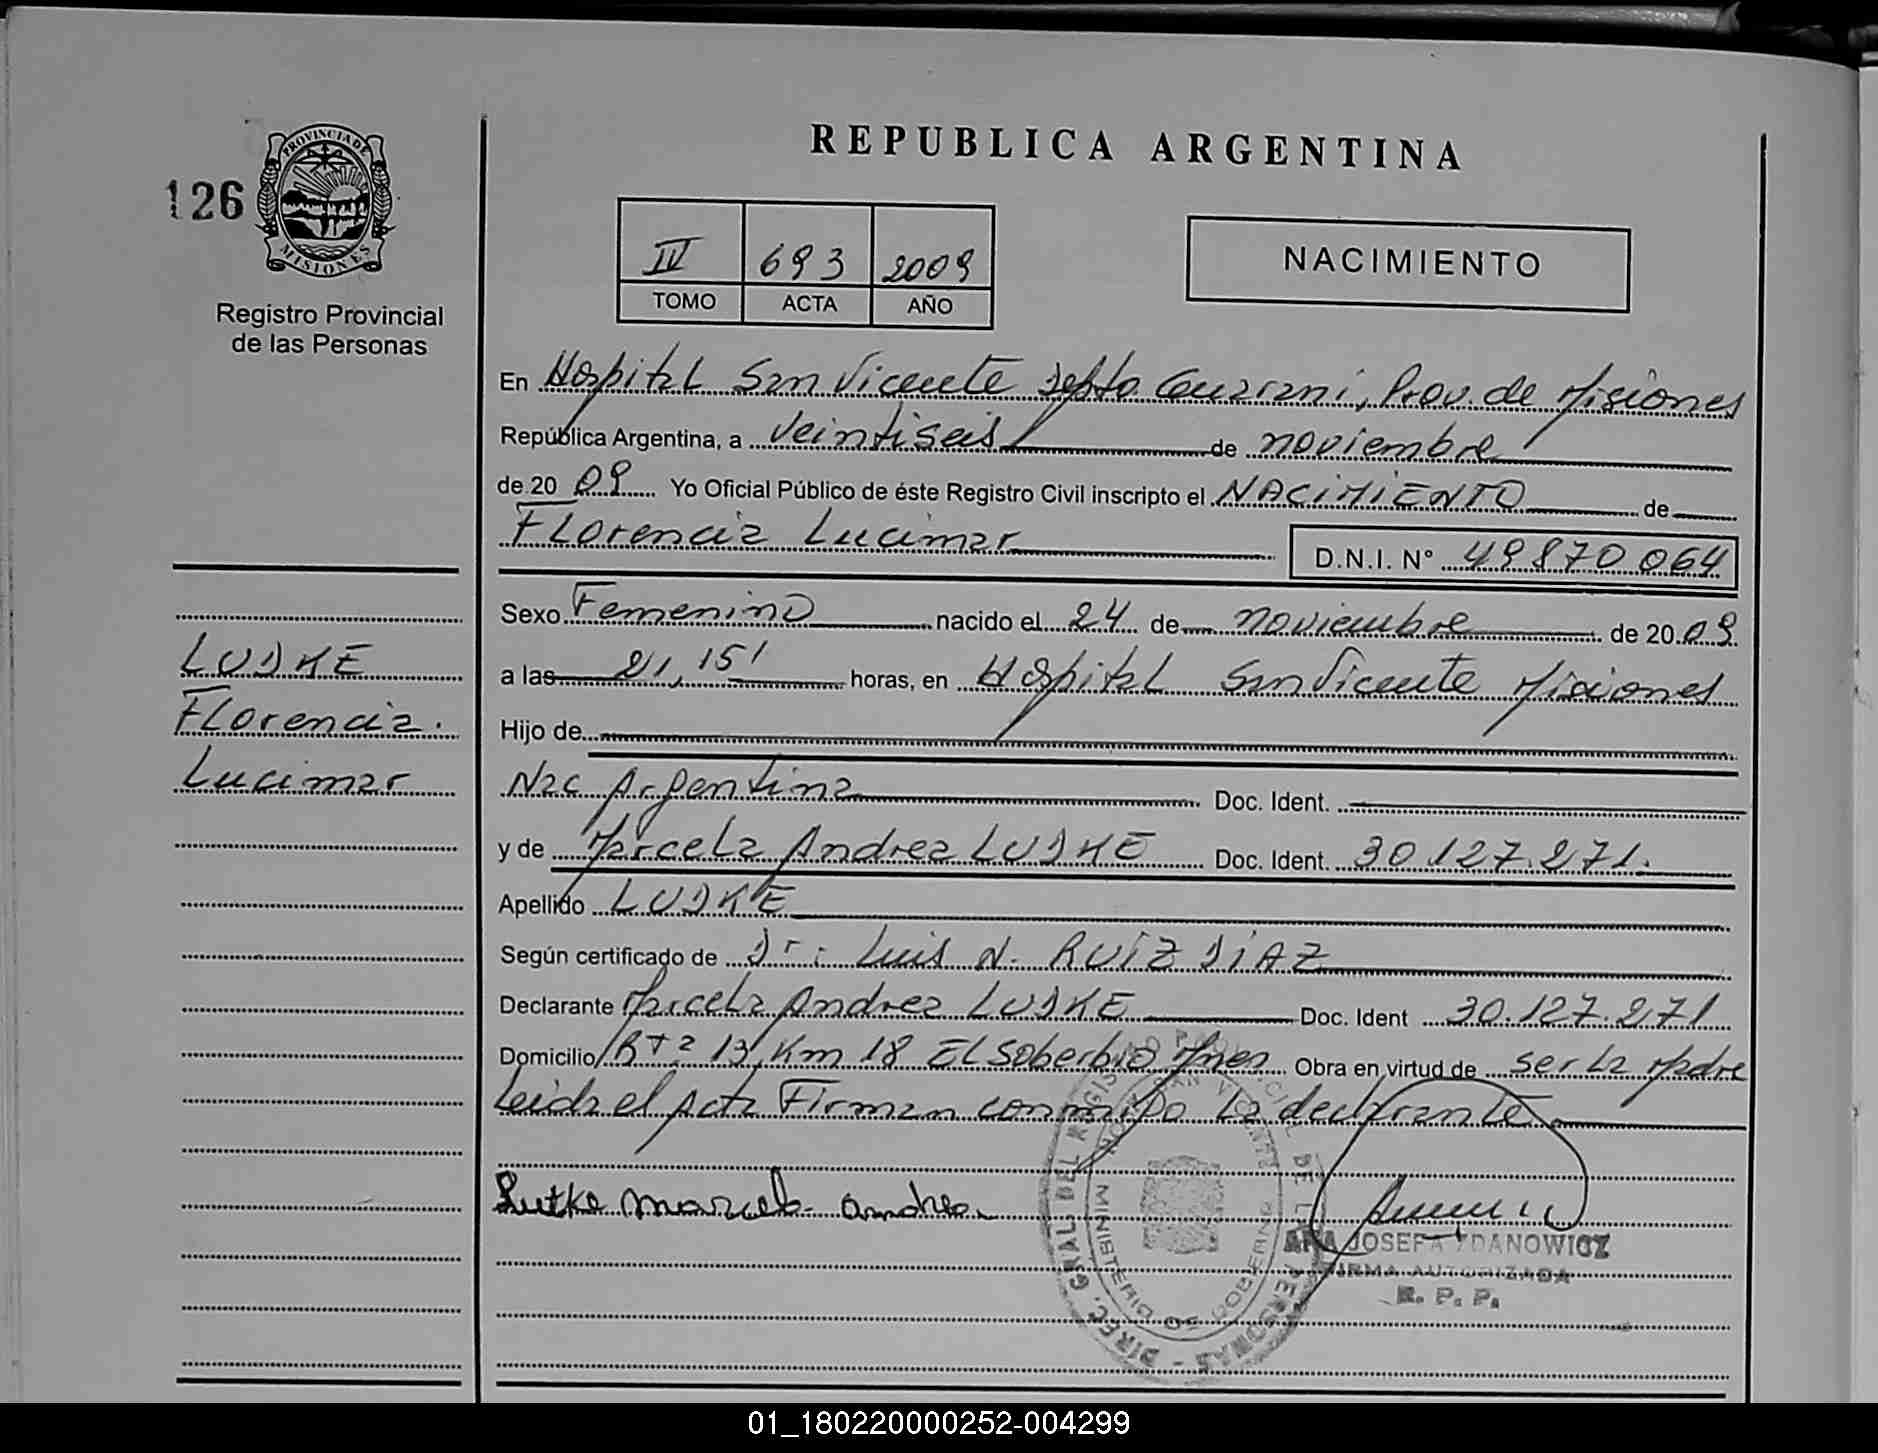 REPUBLICA ARGENTINA
126
PROVINCIA DE
MISIONES
Registro Provincial
de las Personas
IV 693 2009
TOMO ACTA AÑO
NACIMIENTO
En Hospital San Vicente Depto Guarani, Prov. de Misiones
República Argentina, a veintiseis de noviembre
de 20 09 Yo Oficial Público de éste Registro Civil inscripto el NACIMIENTO de
Florencia Lucimar D.N.I. Nº 49870064
Sexo Femenino nacido el 24 de noviembre de 20 09
a las 21,15 horas, en Hospital San Vicente Misiones
Hijo de
Nac Argentina Doc. Ident.
y de Marcela Andrea LUDKE Doc. Ident. 30.127.271.
Apellido LUDKE
Según certificado de Dr: Luis N. RUIZ DIAZ
Declarante Marcela Andrea LUDKE Doc. Ident 30.127.271
Domicilio Rta 13 Km 18 El Soberbio Mnes Obra en virtud de ser la Madre
Leida el acta Firman conmigo la declarante
Lutke Marcela andrea
LUDKE
Florencia
Lucimar
DIREC. GRAL. DEL REGISTRO PROVINCIAL DE LAS PERSONAS
MINISTERIO DE GOBIERNO
SAN VICENTE
ANA JOSEFA ZDANOWICZ
FIRMA AUTORIZADA
R. P. P.
01_180220000252-004299